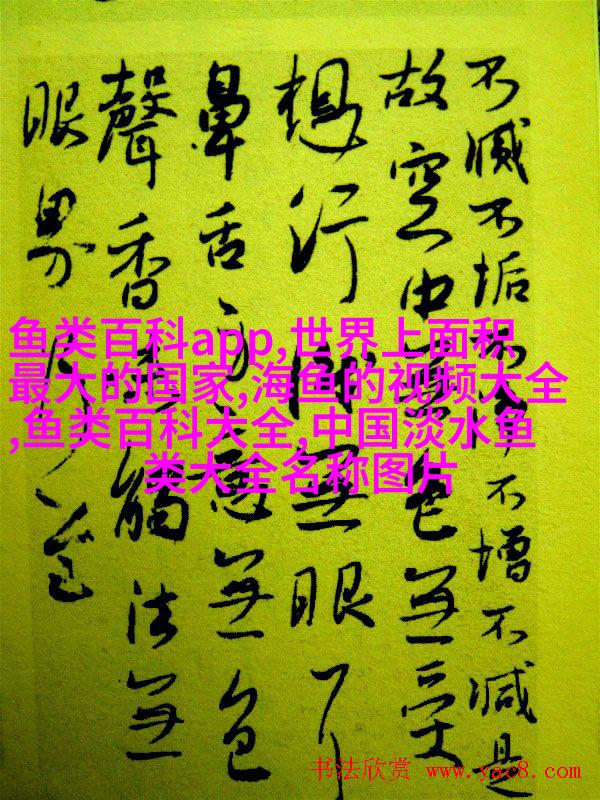 不滅不垢不增不減是
故空中無色無受
想行識無眼耳
鼻舌身意無色
聲香味觸法無
眼界
鱼类百科app,世界上面积
最大的国家,海鱼的视频大全
,鱼类百科大全,中国淡水鱼
类大全名称图片
书法欣赏 www.yac8.com